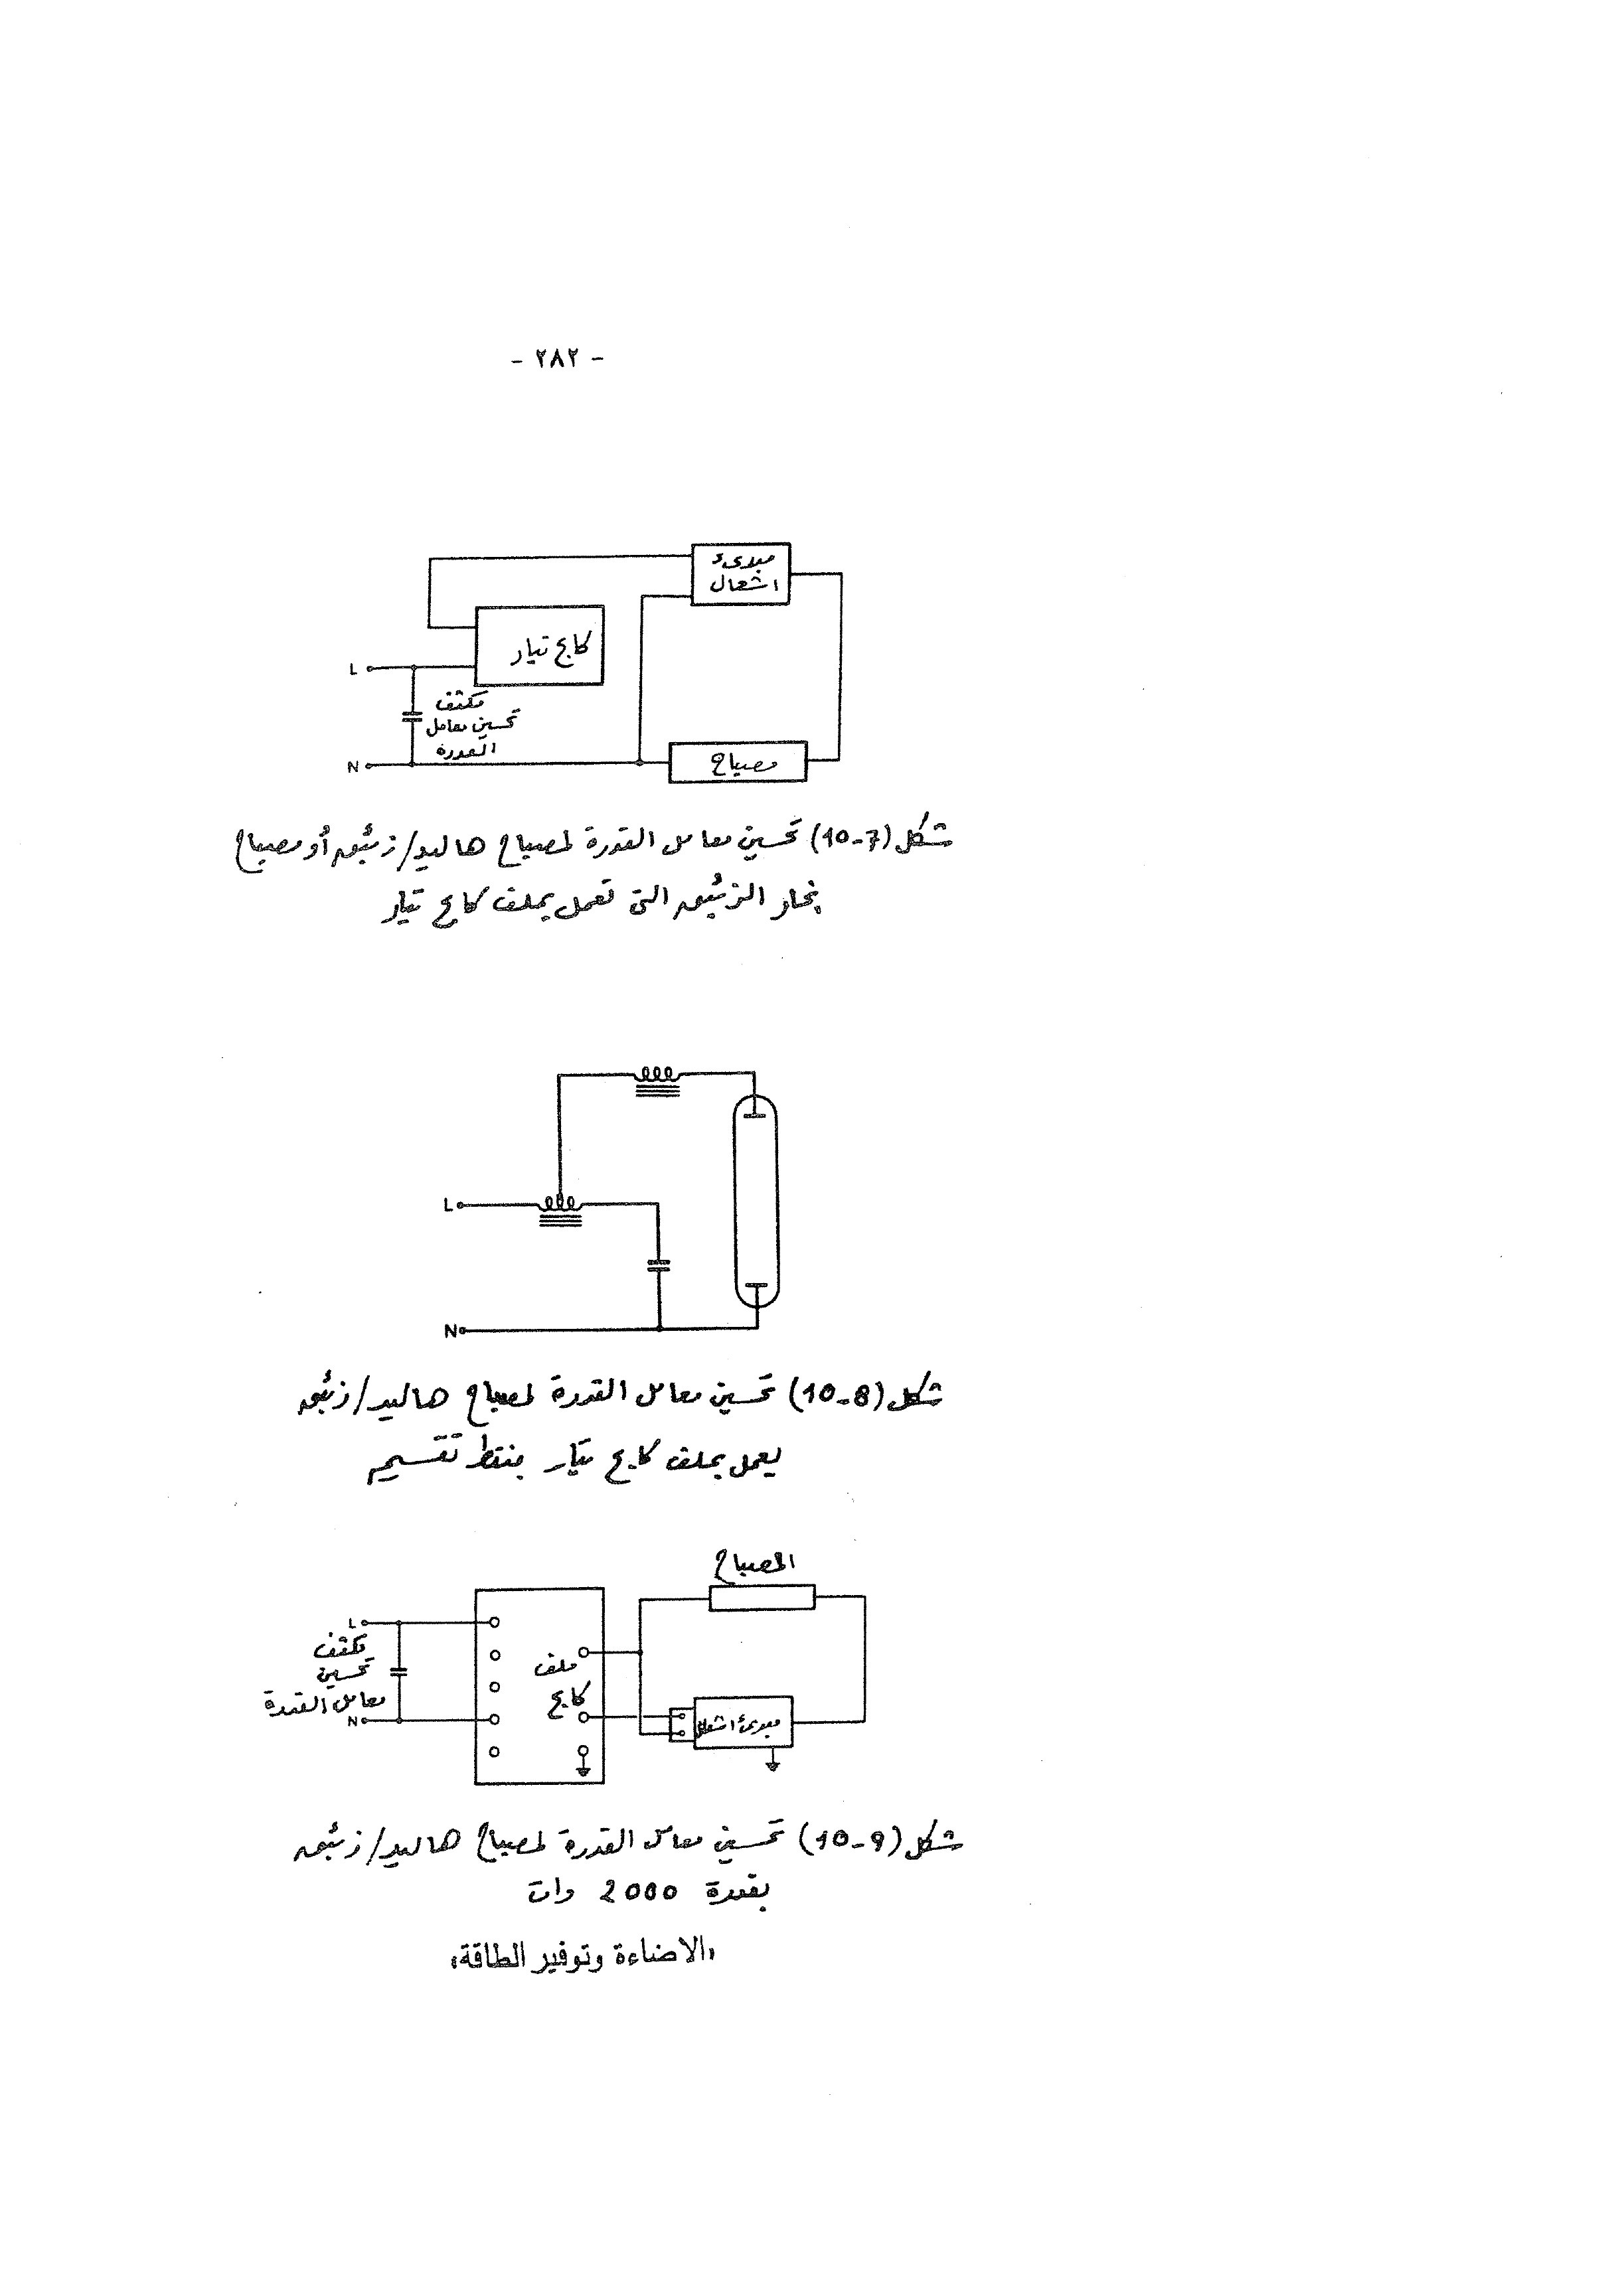 - ٢٨٢ -
مبدىء
اشعال
كابح تيار
L
مكثف
تحسين معامل
القدرة
N
مصباح
شكل (7-10) تحسين معامل القدرة لمصباح هاليد/زئبق أو مصباح
بخار الزئبق التى تعمل بملف كابح تيار
L
N
شكل (8-10) تحسين معامل القدرة لمصباح هاليد/زئبق
يعمل بملف كابح تيار بنقط تقسيم
المصباح
L
مكثف
تحسين
معامل القدرة
N
ملف
كابح
مبدىء اشعال
شكل (9-10) تحسين معامل القدرة لمصباح هاليد/زئبق
بقدرة 2000 وات
«الاضاءة وتوفير الطاقة»